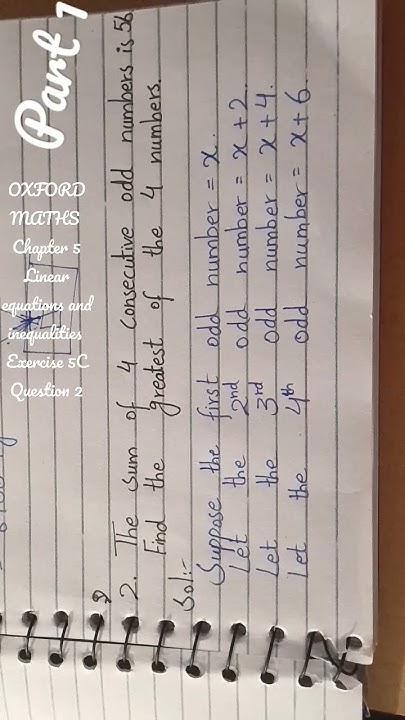 Part 1
OXFORD
MATHS
Chapter 5
Linear
equations and
inequalities
Exercise 5C
Question 2
2. The sum of 4 consecutive odd numbers is 56
Find the greatest of the 4 numbers.
Sol:-
Suppose the first odd number = x.
Let the 2nd odd number = x + 2.
Let the 3rd odd number = x + 4.
Let the 4th odd number = x + 6.